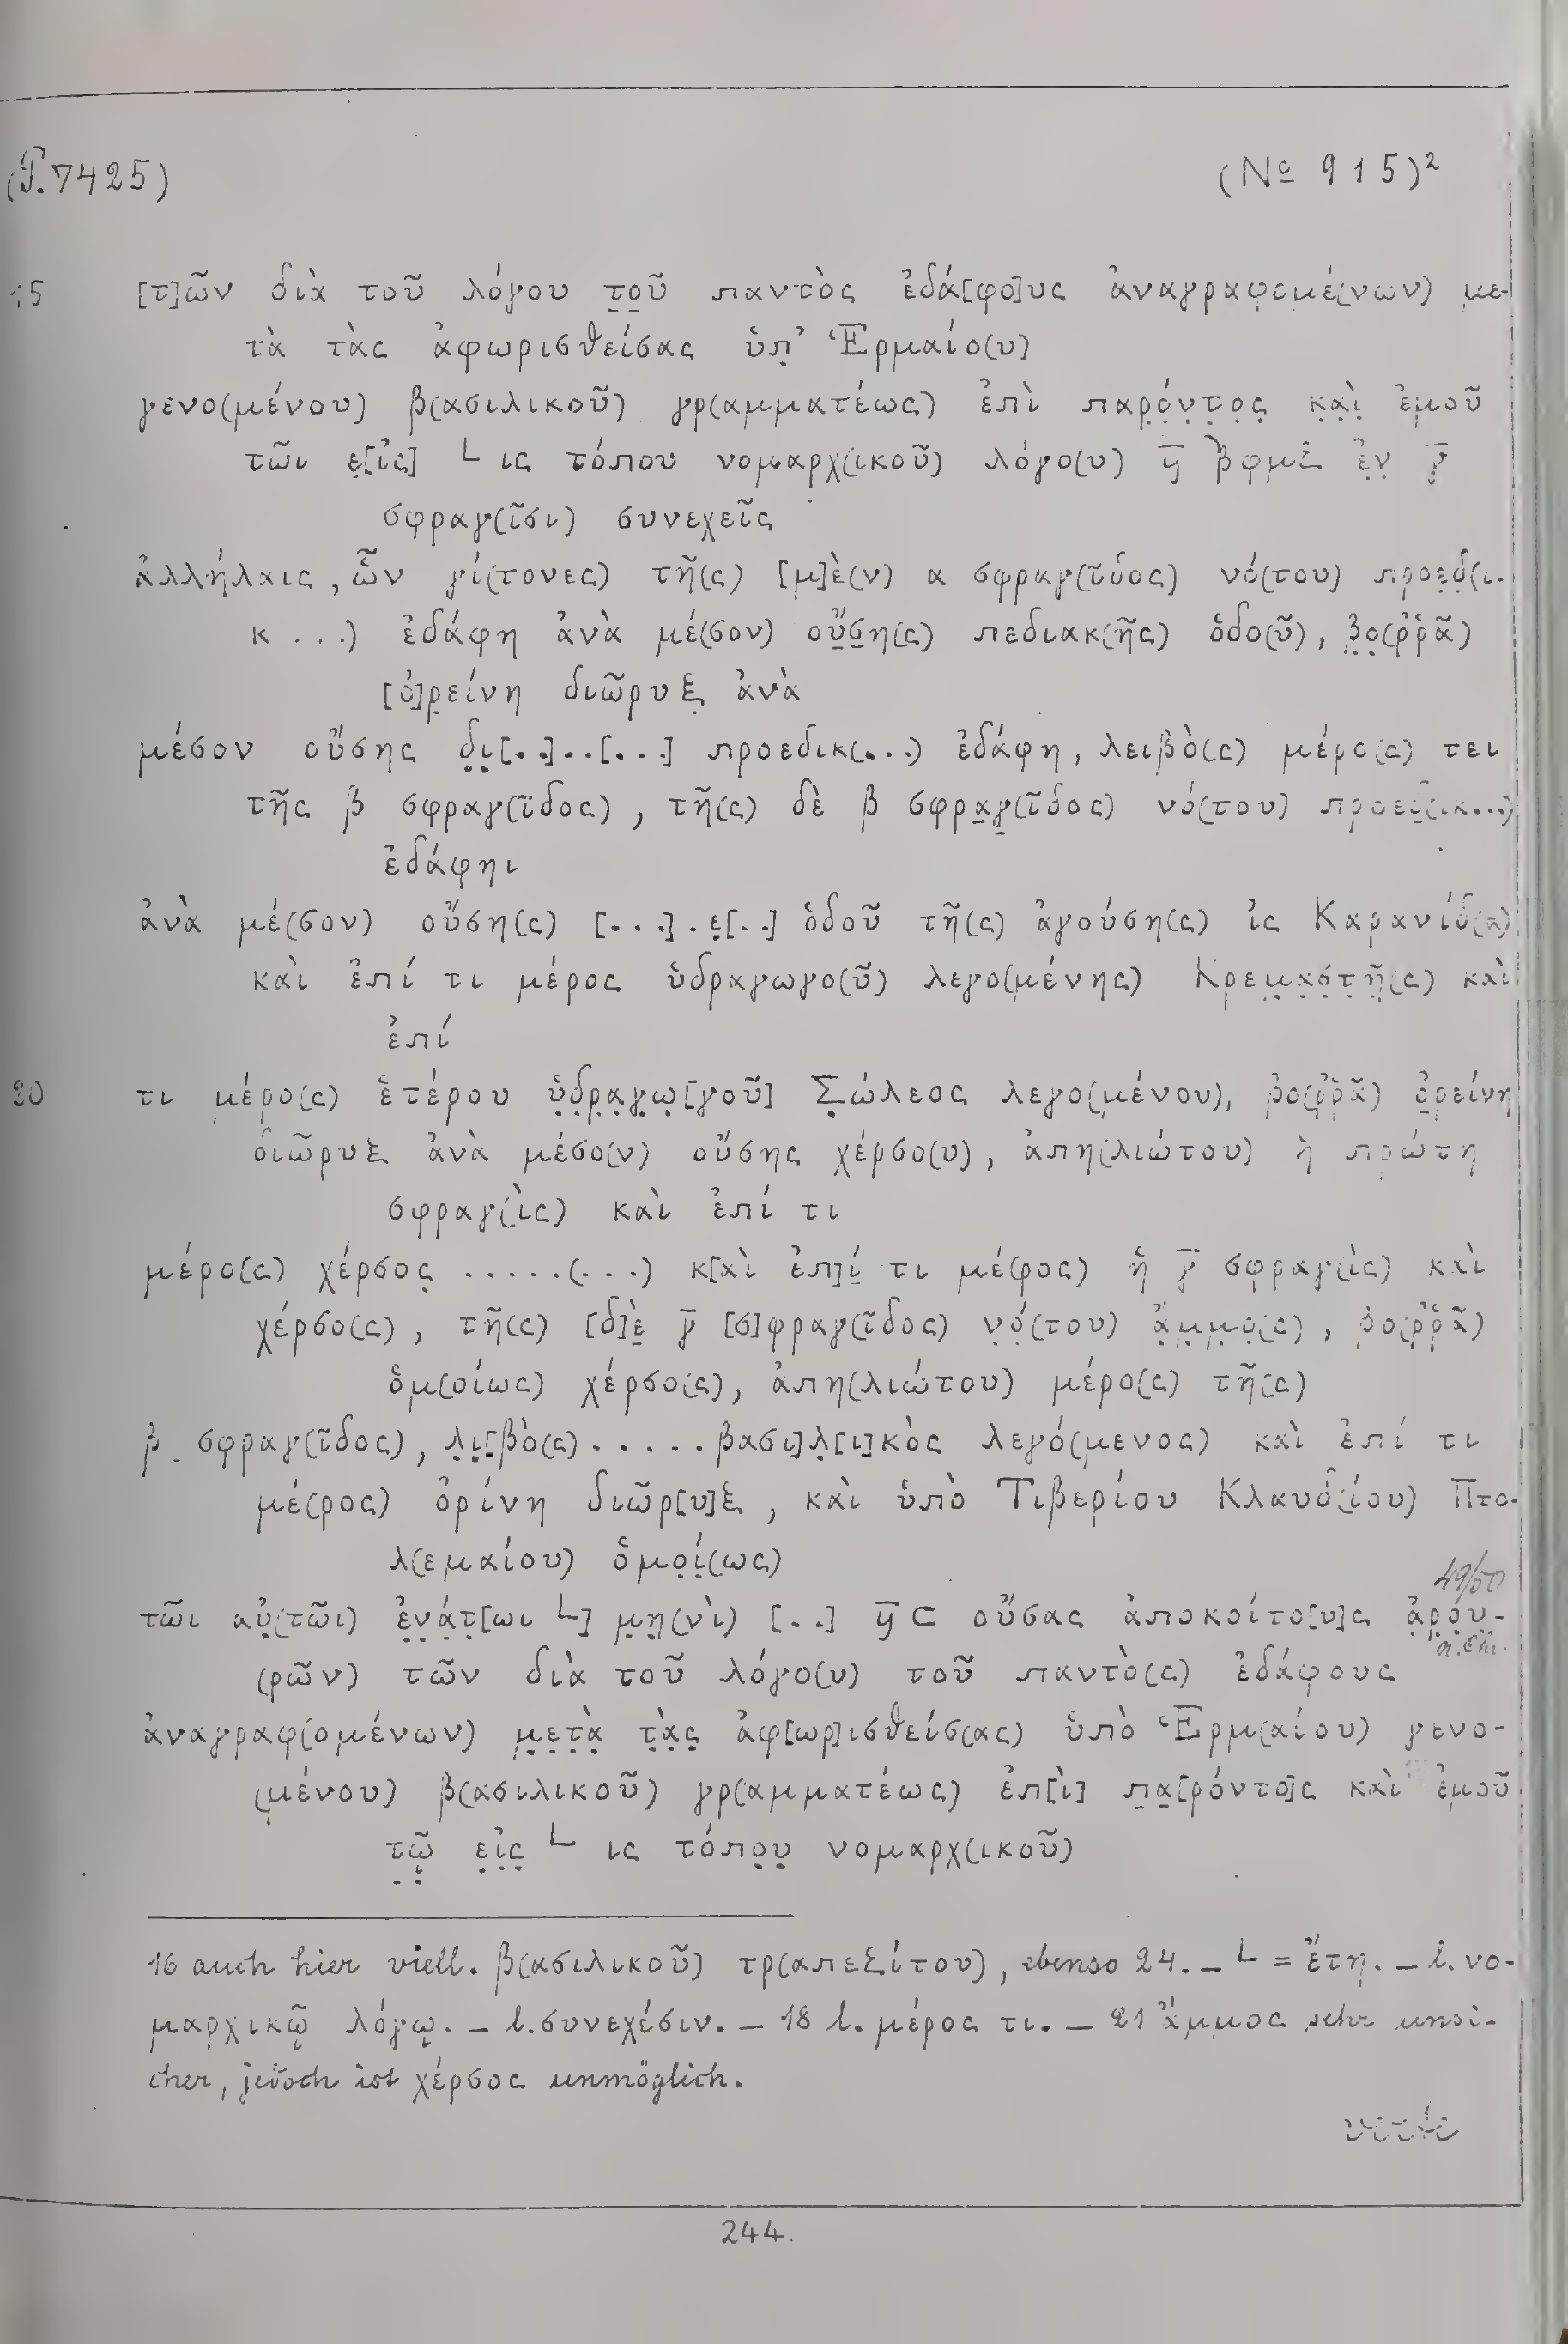 (P. 7425) (№ 915)²
15 [τ]ῶν διὰ τοῦ λόγου τ̣ο̣ῦ παντὸς ἐδά[φο]υς ἀναγραφομέ(νων) με-
τὰ τὰς ἀφωρισθείσας ὑπ̣’ Ἑρμαίο(υ)
γενο(μένου) β(ασιλικοῦ) γρ(αμματέως) ἐπὶ παρ̣ό̣ν̣τ̣ο̣ς̣ κ̣α̣ὶ̣ ἐμοῦ
τῶι ε̣[ἰς] └ ις τόπου νομαρχ(ικοῦ) λόγο(υ) ἐ̣ν̣ γ̅
σφραγ(ῖσι) συνεχεῖς
ἀλλήλαις, ὧν γί(τονες) τῆ(ς) [μ]ὲ(ν) α σφραγ(ῖδος) νό(του) προε̣δ̣(ι-
κ . . .) ἐδάφη ἀνὰ μέ(σον) οὔ̣σ̣η(ς) πεδιακ(ῆς) ὁδο(ῦ), β̣ο̣(ῤῥᾶ)
[ὀ]ρ̣είνη διῶρυξ ἀνὰ
μέσον οὔσης δ̣ι̣[. .]. .[. . .] προεδικ(. . .) ἐδάφη, λειβὸ(ς) μέρο(ς) τει
τῆς β σφραγ(ῖδος), τῆ(ς) δὲ β σφρα̣γ̣(ῖδος) νό(του) προεδ(ικ. . .)
ἐδάφηι
ἀνὰ μέ(σον) οὔση(ς) [. . .] . ε̣[. .] ὁδοῦ τῆ(ς) ἀγούση(ς) ἰς Καρανίδ(α)
καὶ ἐπί τι μέρος ὑδραγωγο(ῦ) λεγο(μένης) Κρεμ̣α̣σ̣τ̣ῆ̣(ς) καὶ
ἐπί
20 τι μέρο(ς) ἑτέρου ὑ̣δ̣ρ̣α̣γ̣ω̣[γοῦ] Σ̣ώλεος λεγο(μένου), βο(ῤῥᾶ) ὀ̣ρείνη
διῶρυξ ἀνὰ μέσο(ν) οὔσης χέρσο(υ), ἀπη(λιώτου) ἡ πρώτη
σφραγ(ὶς) καὶ ἐπί τι
μέρο(ς) χέρσος̣ . . . . .(. . .) κ[αὶ ἐπ]ί̣ τι μέ(ρος) ἡ γ̅ σφραγ(ὶς) καὶ
χέρσο(ς), τῆ(ς) [δ]ὲ̣ γ̅ [σ]φραγ(ῖδος) ν̣ό̣(του) ἄ̣μ̣μ̣ο̣(ς), βο(ῤῥᾶ)
ὁμ(οίως) χέρσο(ς), ἀπη(λιώτου) μέρο(ς) τῆ(ς)
β σφραγ(ῖδος), λ̣ι̣[βὸ(ς) . . . . . βασι]λ̣[ι]κὸς λεγό(μενος) καὶ ἐπί τι
μέ(ρος) ὀρίνη διῶρ[υ]ξ, καὶ ὑπὸ Τιβερίου Κλαυδ(ίου) Πτο-
λ(εμαίου) ὁμο̣ί̣(ως)
49/50
τῶι αὐ̣(τῶι) ἐ̣ν̣ά̣τ̣[ωι └] μ̣η̣(νὶ) [. .] οὔσας ἀποκοίτο[υ]ς ἀ̣ρ̣ο̣υ̣-
(ρῶν) τῶν διὰ τοῦ λόγο(υ) τοῦ παντὸ(ς) ἐδάφους
ἀναγραφ(ομένων) μ̣ε̣τ̣ὰ̣ τ̣ὰ̣ς̣ ἀφ[ωρ]ισθείσ(ας) ὑπὸ Ἑρμ(αίου) γενο-
(μένου) β(ασιλικοῦ) γρ(αμματέως) ἐπ[ὶ] π̣α̣[ρόντο]ς καὶ ἐμοῦ
τ̣ῷ̣ ε̣ἰ̣ς̣ └ ις τόπο̣υ̣ νομαρχ(ικοῦ)
16 auch hier viell. β(ασιλικοῦ) τρ(απεζίτου), ebenso 24. – └ = ἔτη. – l. νο-
μαρχικῷ λόγῳ. – l. συνεχέσιν. – 18 l. μέρος τι. – 21 ἄμμος sehr unsi-
cher, jedoch ist χέρσος unmöglich.
verte
244.